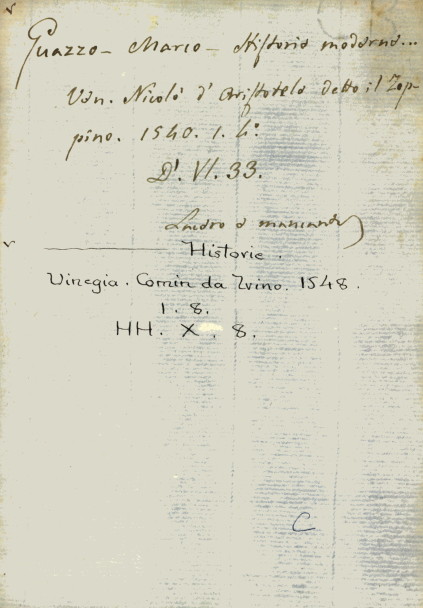 Guazzo - Marco - Historie moderne...
Ven. Nicolò d'Aristotele detto il Zop-
pino. 1540. 1. 4°.
D'. VI. 33.
Laidro e mancante
Historie.
Vinegia. Comin da Trino. 1548.
1. 8.
HH. X. 8.
C